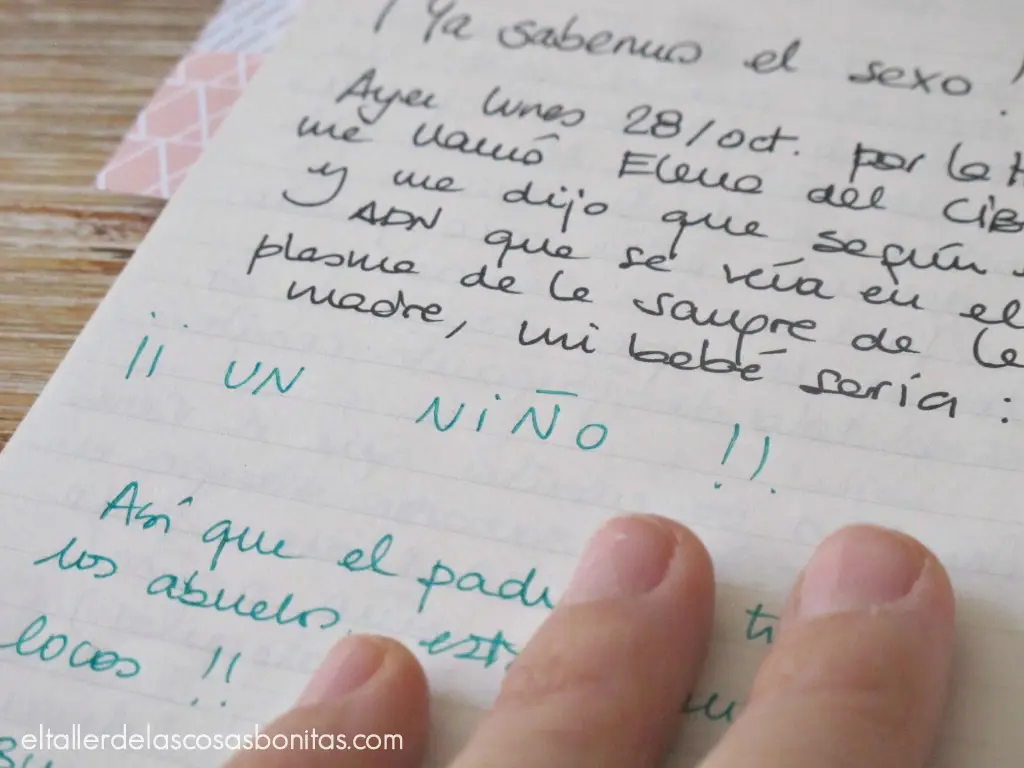 ¡Ya sabemos el sexo!
Ayer lunes 28/oct. por la t
me llamó Elena del CIB
y me dijo que según
ADN que se veía en el
plasma de la sangre de la
madre, mi bebé sería:
¡¡ UN NIÑO !!
Así que el padr
los abuelos, est
locos !!
eltallerdelascosasbonitas.com